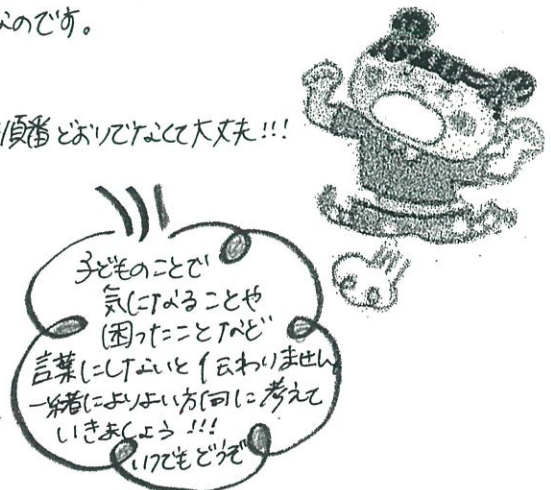 なのです。
順番どおりでなくて大丈夫!!!
子どものことで
気になることや
困ったことなど
言葉にしないと伝わりません
一緒によりよい方向に考えて
いきましょう!!!
いつでもどうぞ